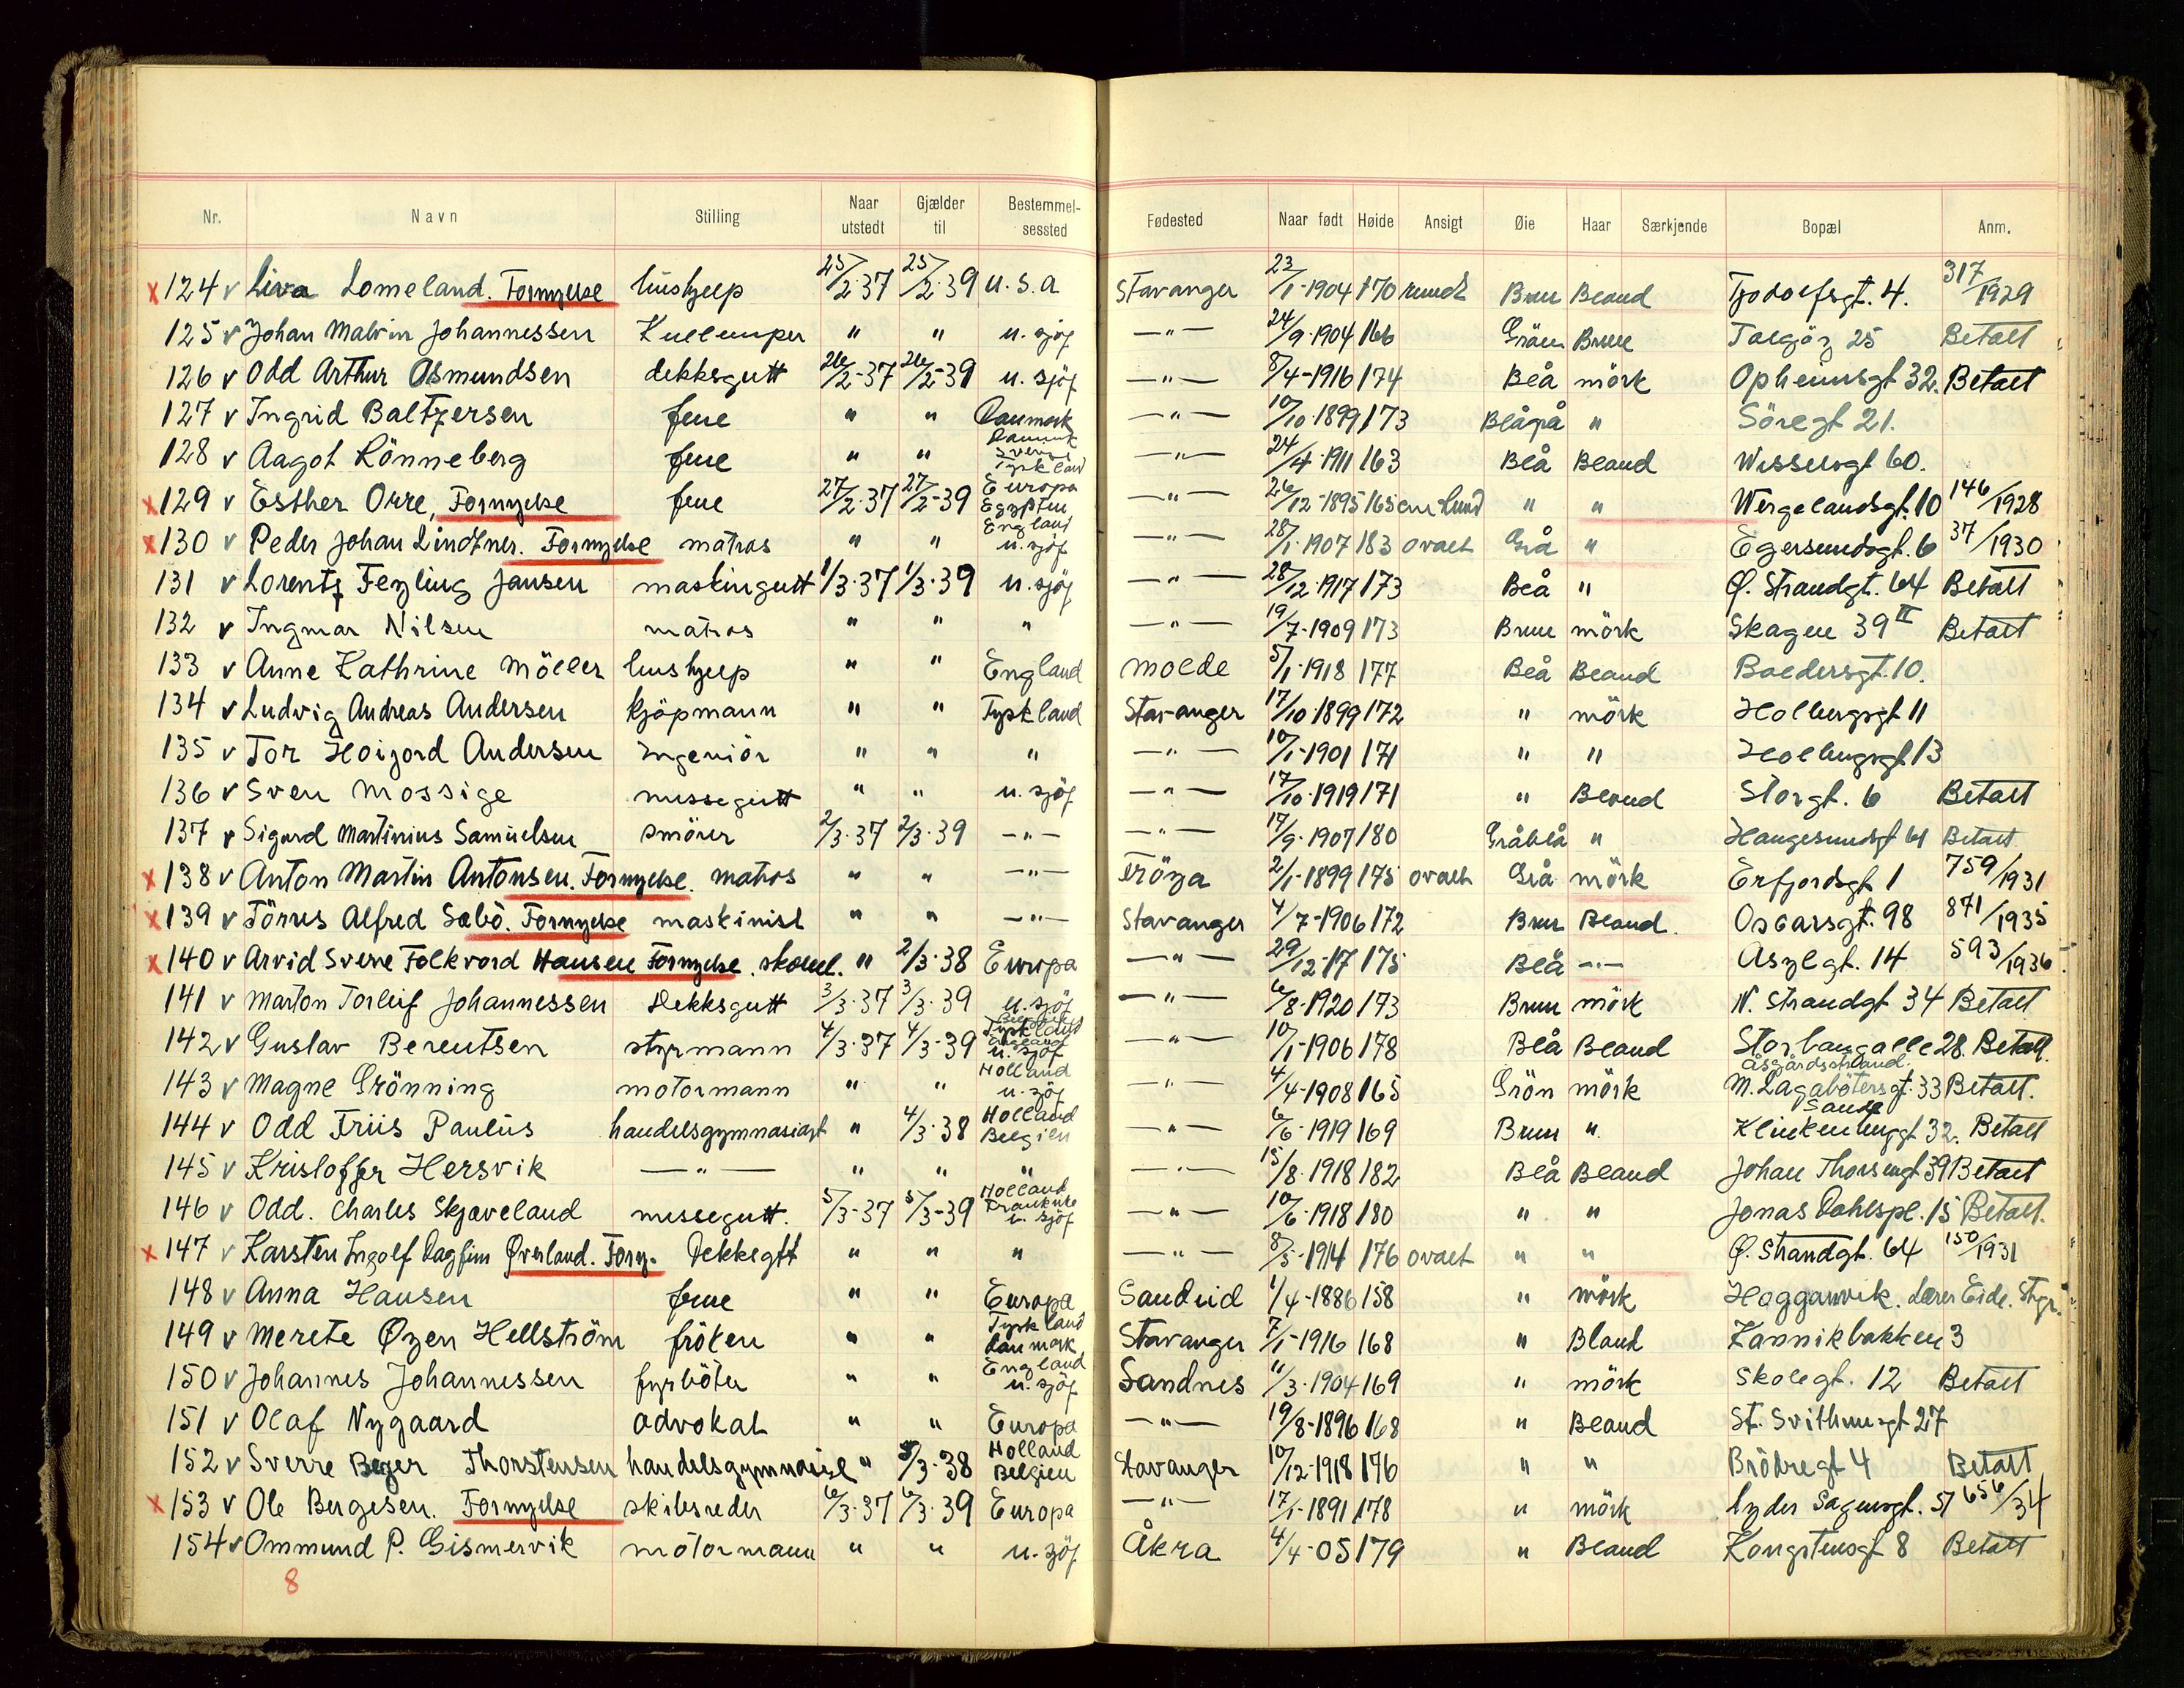 Nr. Navn Stilling Naar utstedt Gjælder til Bestemmelsessted Fødested Naar født Høide Ansigt Øie Haar Særkjende Bopæl Anm.
x 124 v Liva Lomeland. Fornyelse hushjelp 25/2-37 25/2-39 U.S.A Stavanger 23/1-1904 170 rundt Brun Bland Tjodolfsgt. 4. 317/1929
125 v Johan Malvin Johannessen Kullemper " " u. sjøf —"— 24/9-1904 166 Brun Talgöz 25 Betalt
126 v Odd Arthur Osmundsen dekksgutt 26/2-37 26/2-39 u. sjöf —"— 8/4-1916 174 Blå mörk Opheimsgt 32. Betalt
127 v Ingrid Baltzersen frue " " Danmark —"— 10/10-1899 173 Blågrå " Söregt 21.
128 v Aagot Rönneberg frue " " Danmark Sverige Tyskland —"— 24/4-1911 163 Blå Bland Wesselsgt 60.
x 129 v Esther Orre, Fornyelse frue 27/2-37 27/2-39 Europa Egypten —"— 26/12-1895 165 " " Wergelandsgt. 10 146/1928
x 130 v Peder Johan Lindtner. Fornyelse matros " " England u. sjöf —"— 28/1-1907 183 ovalt Grå " Egersundsgt. 6 37/1930
131 v Lorentz Feyling Jansen maskingutt 1/3-37 1/3-39 u. sjöf —"— 28/12-1917 173 Blå " Ø. Strandgt. 64 Betalt
132 v Ingmar Nilsen matros " " " —"— 19/7-1909 173 Brun mörk Skagen 39 II Betalt
133 v Anne Kathrine Möller hushjelp " " England Molde 5/1-1918 177 Blå Bland Baldersgt. 10.
134 v Ludvig Andreas Andersen kjöpmann " " Tyskland Stavanger 17/10-1899 172 " mörk Holbergsgt 11
135 v Tor Andersen Ingeniör " " " —"— 10/1-1901 171 " " Holbergsgt 13
136 v Sven Mossige messegutt " " u. sjöf —"— 17/10-1919 171 " Bland Storgt. 6 Betalt
137 v Sigurd Martinius Samuelsen smörer 2/3-37 2/3-39 —"— —"— 17/9-1907 180 Gråblå " Haugesundsgt 61 Betalt
x 138 v Anton Martin Antonsen. Fornyelse. matros " " —"— Fröya 2/1-1899 175 ovalt Grå mörk Erfjordsgt 1 759/1931
x 139 v Törres Alfred Sæbö. Fornyelse maskinist " " —"— Stavanger 4/7-1906 172 Brun Bland. Oscarsgt. 98 871/1935
x 140 v Arvid Sverre Folkvord Hansen Fornyelse. skoleel. " 2/3-38 Europa —"— 29/12-17 175 Blå —"— Asylgt. 14 593/1936
141 v Marton Torleif Johannessen Dekksgutt 3/3-37 3/3-39 u. sjöf —"— 6/8-1920 173 Brun mörk N. Strandgt 34 Betalt
142 v Gustav Berentsen styrmann 4/3-37 4/3-39 Belgien Tyskland England u. sjöf —"— 10/1-1906 178 Blå Bland Storhaugalle 28. Betalt.
143 v Magne Grönning motormann " " Holland u. sjöf —"— 4/4-1908 165 Grön mörk Åsgårdsstrand M. Lagabötersgt. 33 Betalt.
144 v Odd Friis Paulus handelsgymnasiast " 4/3-38 Holland Belgien —"— 6/6-1919 169 Brun " Sande Klinkenberggt 32. Betalt
145 v Kristoffer Hersvik —"— " " " —"— 15/8-1918 182 Blå Bland Johan Thorsengt 39 Betalt
146 v Odd. Charles Skjæveland messegutt. 5/3-37 5/3-39 Holland Frankrike u. sjöf —"— 10/6-1918 180 " " Jonas Dahlspl. 15 Betalt.
x 147 v Karsten Ingolf Dagfinn Øverland. Forny. Dekksgtt " " " —"— 8/5-1914 176 ovalt " " Ø. Strandgt. 64 150/1931
148 v Anna Hansen frue " " Europa Sandeid 1/4-1886 158 " mörk Hogganvik. Lærer Eide. Stgr.
149 v Merete Øzen Hellström fröken " " Tyskland Danmark Stavanger 7/1-1916 168 " Bland Kannikbakken 3
150 v Johannes Johannessen fyrböter " " England u. sjöf Sandnes 11/3-1904 169 " mörk Skolegt. 12 Betalt
151 v Olaf Nygaard advokat " " Europa —"— 19/8-1896 168 " Bland St. Svithunsgt 27
152 v Sverre Beyer Thorstensen handelsgymnasist " 5/3-38 Holland Belgien Stavanger 10/12-1918 176 " " Brödregt 4 Betalt
x 153 v Ole Bergesen. Fornyelse skibsreder 6/3-37 6/3-39 Europa —"— 17/1-1891 178 " mörk Lyder Sagensgt. 51 656/34
154 v Ommund P. Gismervik motormann " " u. sjöf Åkra 4/4-05 179 " Bland Kongstensgt 8 Betalt
8